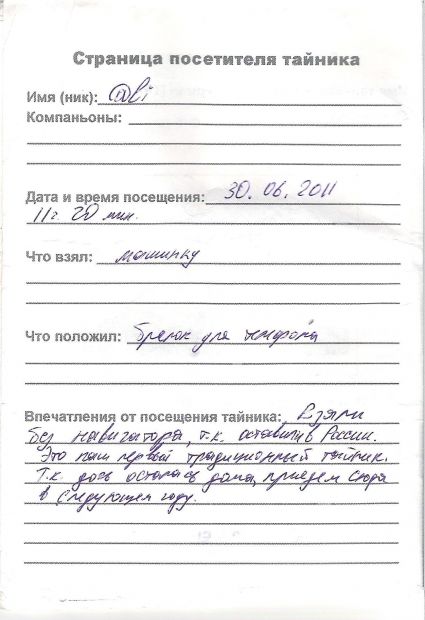 Страница посетителя тайника
Имя (ник):
Компаньоны:
Дата и время посещения: 30.06.2011
11 г. 20 мин.
Что взял: машинку
Что положил: брелок для телефона
Впечатления от посещения тайника: Взяли
без навигатора, т.к. оставили в России.
Это наш первый традиционный тайник.
Т.к. дочь осталась дома, приедем сюда
в следующем году.